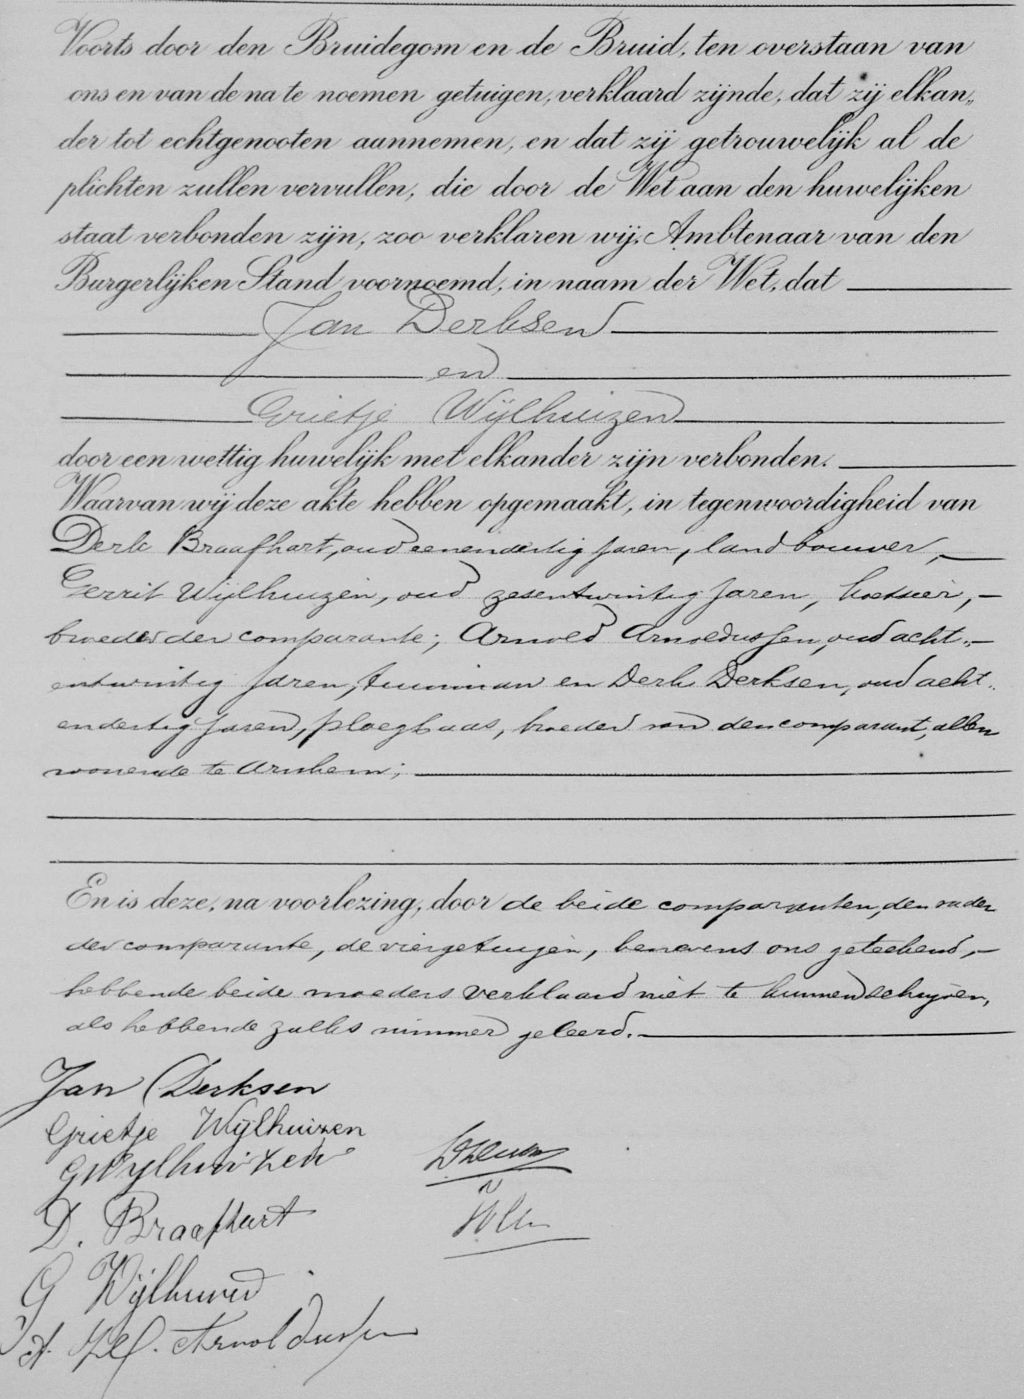 Voorts door den Bruidegom en de Bruid, ten overstaan van
ons en van de na te noemen getuigen, verklaard zijnde, dat zij elkan„
der tot echtgenooten aannemen, en dat zij getrouwelijk al de
plichten zullen vervullen, die door de Wet aan den huwelijken
staat verbonden zijn, zoo verklaren wij, Ambtenaar van den
Burgerlijken Stand voornoemd, in naam der Wet, dat
Jan Derksen
en
Grietje Wijlhuizen
door een wettig huwelijk met elkander zijn verbonden.
Waarvan wij deze akte hebben opgemaakt, in tegenwoordigheid van
Derk Braafhart, oud eenendertig jaren, landbouwer,
Gerrit Wijlhuizen, oud zesentwintig jaren, koetsier,
broeder der comparante; Arnold Arnoldussen, oud acht-
entwintig jaren, tuinman en Derk Derksen, oud acht-
endertig jaren, ploegbaas, broeder van den comparant, allen
wonende te Arnhem;
En is deze, na voorlezing, door de beide comparanten, den vader
der comparante, de vier getuigen, benevens ons geteekend,
hebbende beide moeders verklaard niet te kunnen schrijven,
als hebbende zulks nimmer geleerd.
Jan Derksen
Grietje Wijlhuizen
G Wijlhuizen
D. Braafhart
G Wijlhuizen
A. Arnoldussen